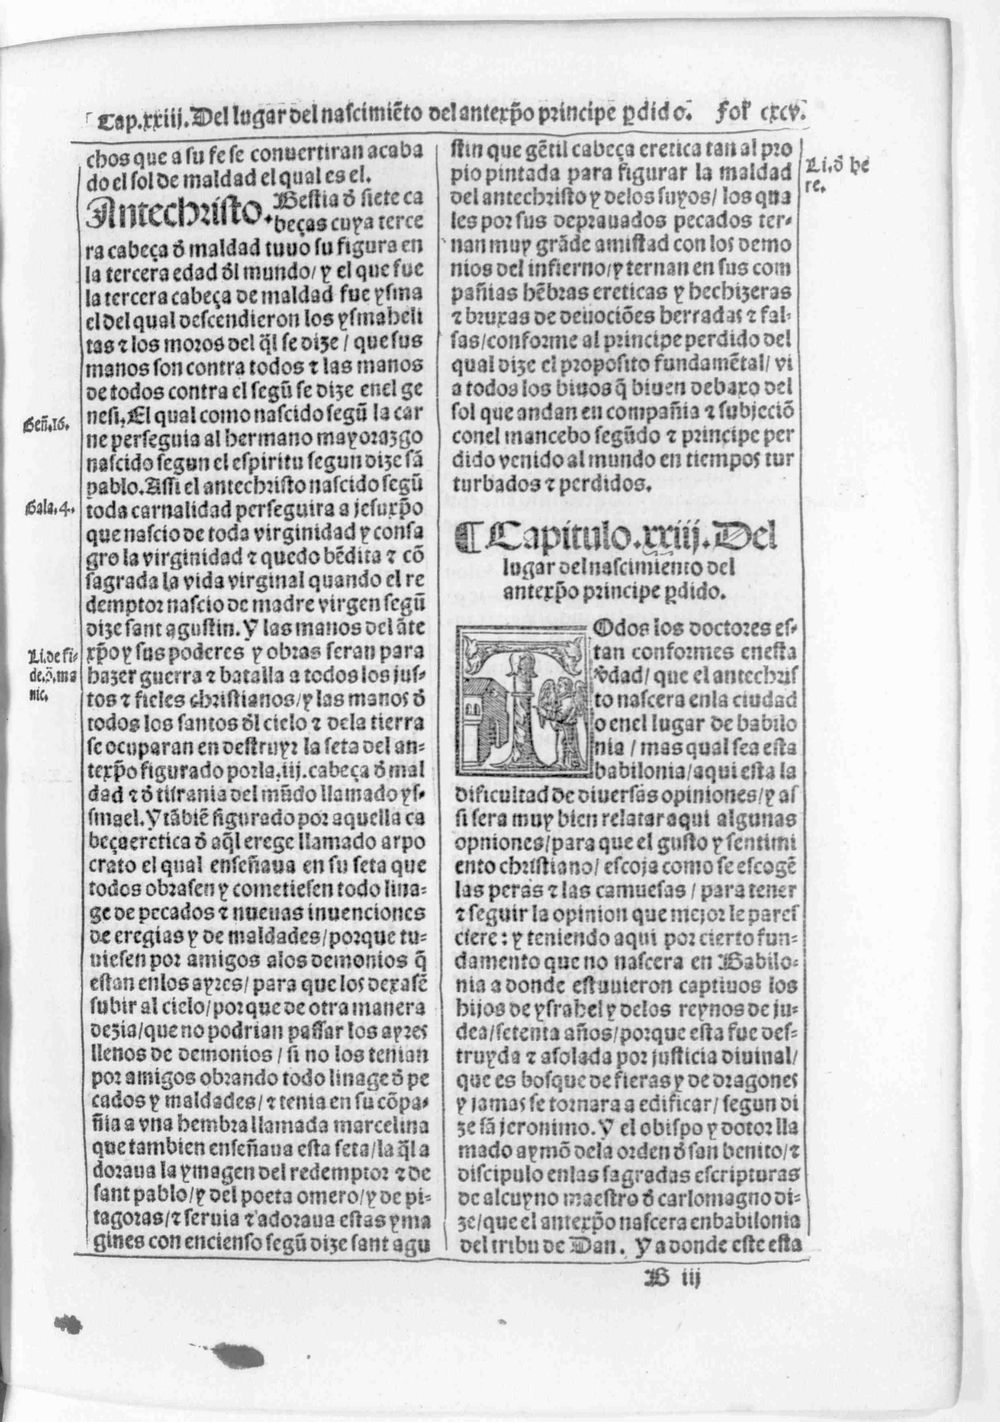 Cap.xxiij. Del lugar del nascimiẽto del antexp̃o principe ꝑdido. Fol. cxcv.
chos que a su fe se conuertiran acaba
do el sol de maldad el qual es el.
Antechristo. Bestia ð siete ca
beças cuya terce
ra cabeça ð maldad tuuo su figura en
la tercera edad ðl mundo/ y el que fue
la tercera cabeça de maldad fue ysma
el del qual descendieron los ysmaheli
tas ⁊ los moros del q̃l se dize / que sus
manos son contra todos ⁊ las manos
de todos contra el segũ se dize enel ge
nesi. El qual como nascido segũ la car
ne perseguia al hermano mayorazgo
nascido segun el espiritu segun dize sã
pablo. Assi el antechristo nascido segũ
toda carnalidad perseguira a jesuxp̃o
que nascio de toda virginidad y consa
gro la virginidad ⁊ quedo bẽdita ⁊ cõ
sagrada la vida virginal quando el re
demptor nascio de madre virgen segũ
dize sant agustin. Y las manos del ãte
xp̃o y sus poderes y obras seran para
hazer guerra ⁊ batalla a todos los jus-
tos ⁊ fieles christianos/ y las manos ð
todos los santos ðl cielo ⁊ de la tierra
se ocuparan en destruyr la seta del an-
texp̃o figurado porla .iij. cabeça ð mal
dad ⁊ ð tirania del mũdo llamado ys-
smael. Y tãbiẽ figurado por aquella ca
beça eretica ð aq̃l erege llamado arpo
crato el qual enseñaua en su seta que
todos obrasen y cometiesen todo lina-
ge de pecados ⁊ nueuas inuenciones
de eregias y de maldades/ porque tu-
uiesen por amigos alos demonios q̃
estan enlos ayres/ para que los dexasẽ
subir al cielo/ porque de otra manera
dezia/ que no podrian passar los ayres
llenos de demonios / si no los tenian
por amigos obrando todo linage ð pe
cados y maldades/ ⁊ tenia en su cõpa-
ñia a vna hembra llamada marcelina
que tambien enseñaua esta seta/ la q̃l a
doraua la ymagen del redemptor ⁊ de
sant pablo/ y del poeta omero/ y de pi-
tagoras/ ⁊ seruia ⁊ adoraua estas yma
gines con encienso segũ dize sant agu
Geñ.16.
Gala.4.
Li.de fi-
de.ɔ̃.ma
nic.
stin que gẽtil cabeça eretica tan al pro
pio pintada para figurar la maldad
del antechristo y delos suyos/ los qua
les por sus deprauados pecados ter-
nan muy grãde amistad con los demo
nios del infierno/ y ternan en sus com
pañias hẽbras ereticas y hechizeras
⁊ bruxas de deuociões herradas ⁊ fal-
sas/ conforme al principe perdido del
qual dize el proposito fundamẽtal/ vi
a todos los biuos q̃ biuen debaxo del
sol que andan en compañia ⁊ subjeciõ
conel mancebo segũdo ⁊ principe per
dido venido al mundo en tiempos tur
turbados ⁊ perdidos.
Li.ð he
re.
¶ Capitulo .xxiij. Del
lugar del nascimiento del
antexp̃o principe ꝑdido.
TOdos los doctores es-
tan conformes enesta
v̓dad/ que el antechris
to nascera enla ciudad
o enel lugar de babilo
nia / mas qual sea esta
babilonia/ aqui esta la
dificultad de diuersas opiniones/ y as
si sera muy bien relatar aqui algunas
opniones/ para que el gusto y sentimi
ento christiano/ escoja como se escogẽ
las peras ⁊ las camuesas / para tener
⁊ seguir la opinion que mejor le pares
ciere: y teniendo aqui por cierto fun-
damento que no nascera en Babilo-
nia a donde estuuieron captiuos los
hijos de ysrahel y delos reynos de ju-
dea/ setenta años/ porque esta fue des-
truyda ⁊ asolada por justicia diuinal/
que es bosque de fieras y de dragones
y jamas se tornara a edificar/ segun di
ze sã jeronimo. Y el obispo y dotor lla
mado aymõ dela orden ð san benito/ ⁊
discipulo enlas sagradas escripturas
de alcuyno maestro ð carlomagno di-
ze/ que el antexp̃o nascera en babilonia
del tribu de Dan. Y a donde este esta
B iij